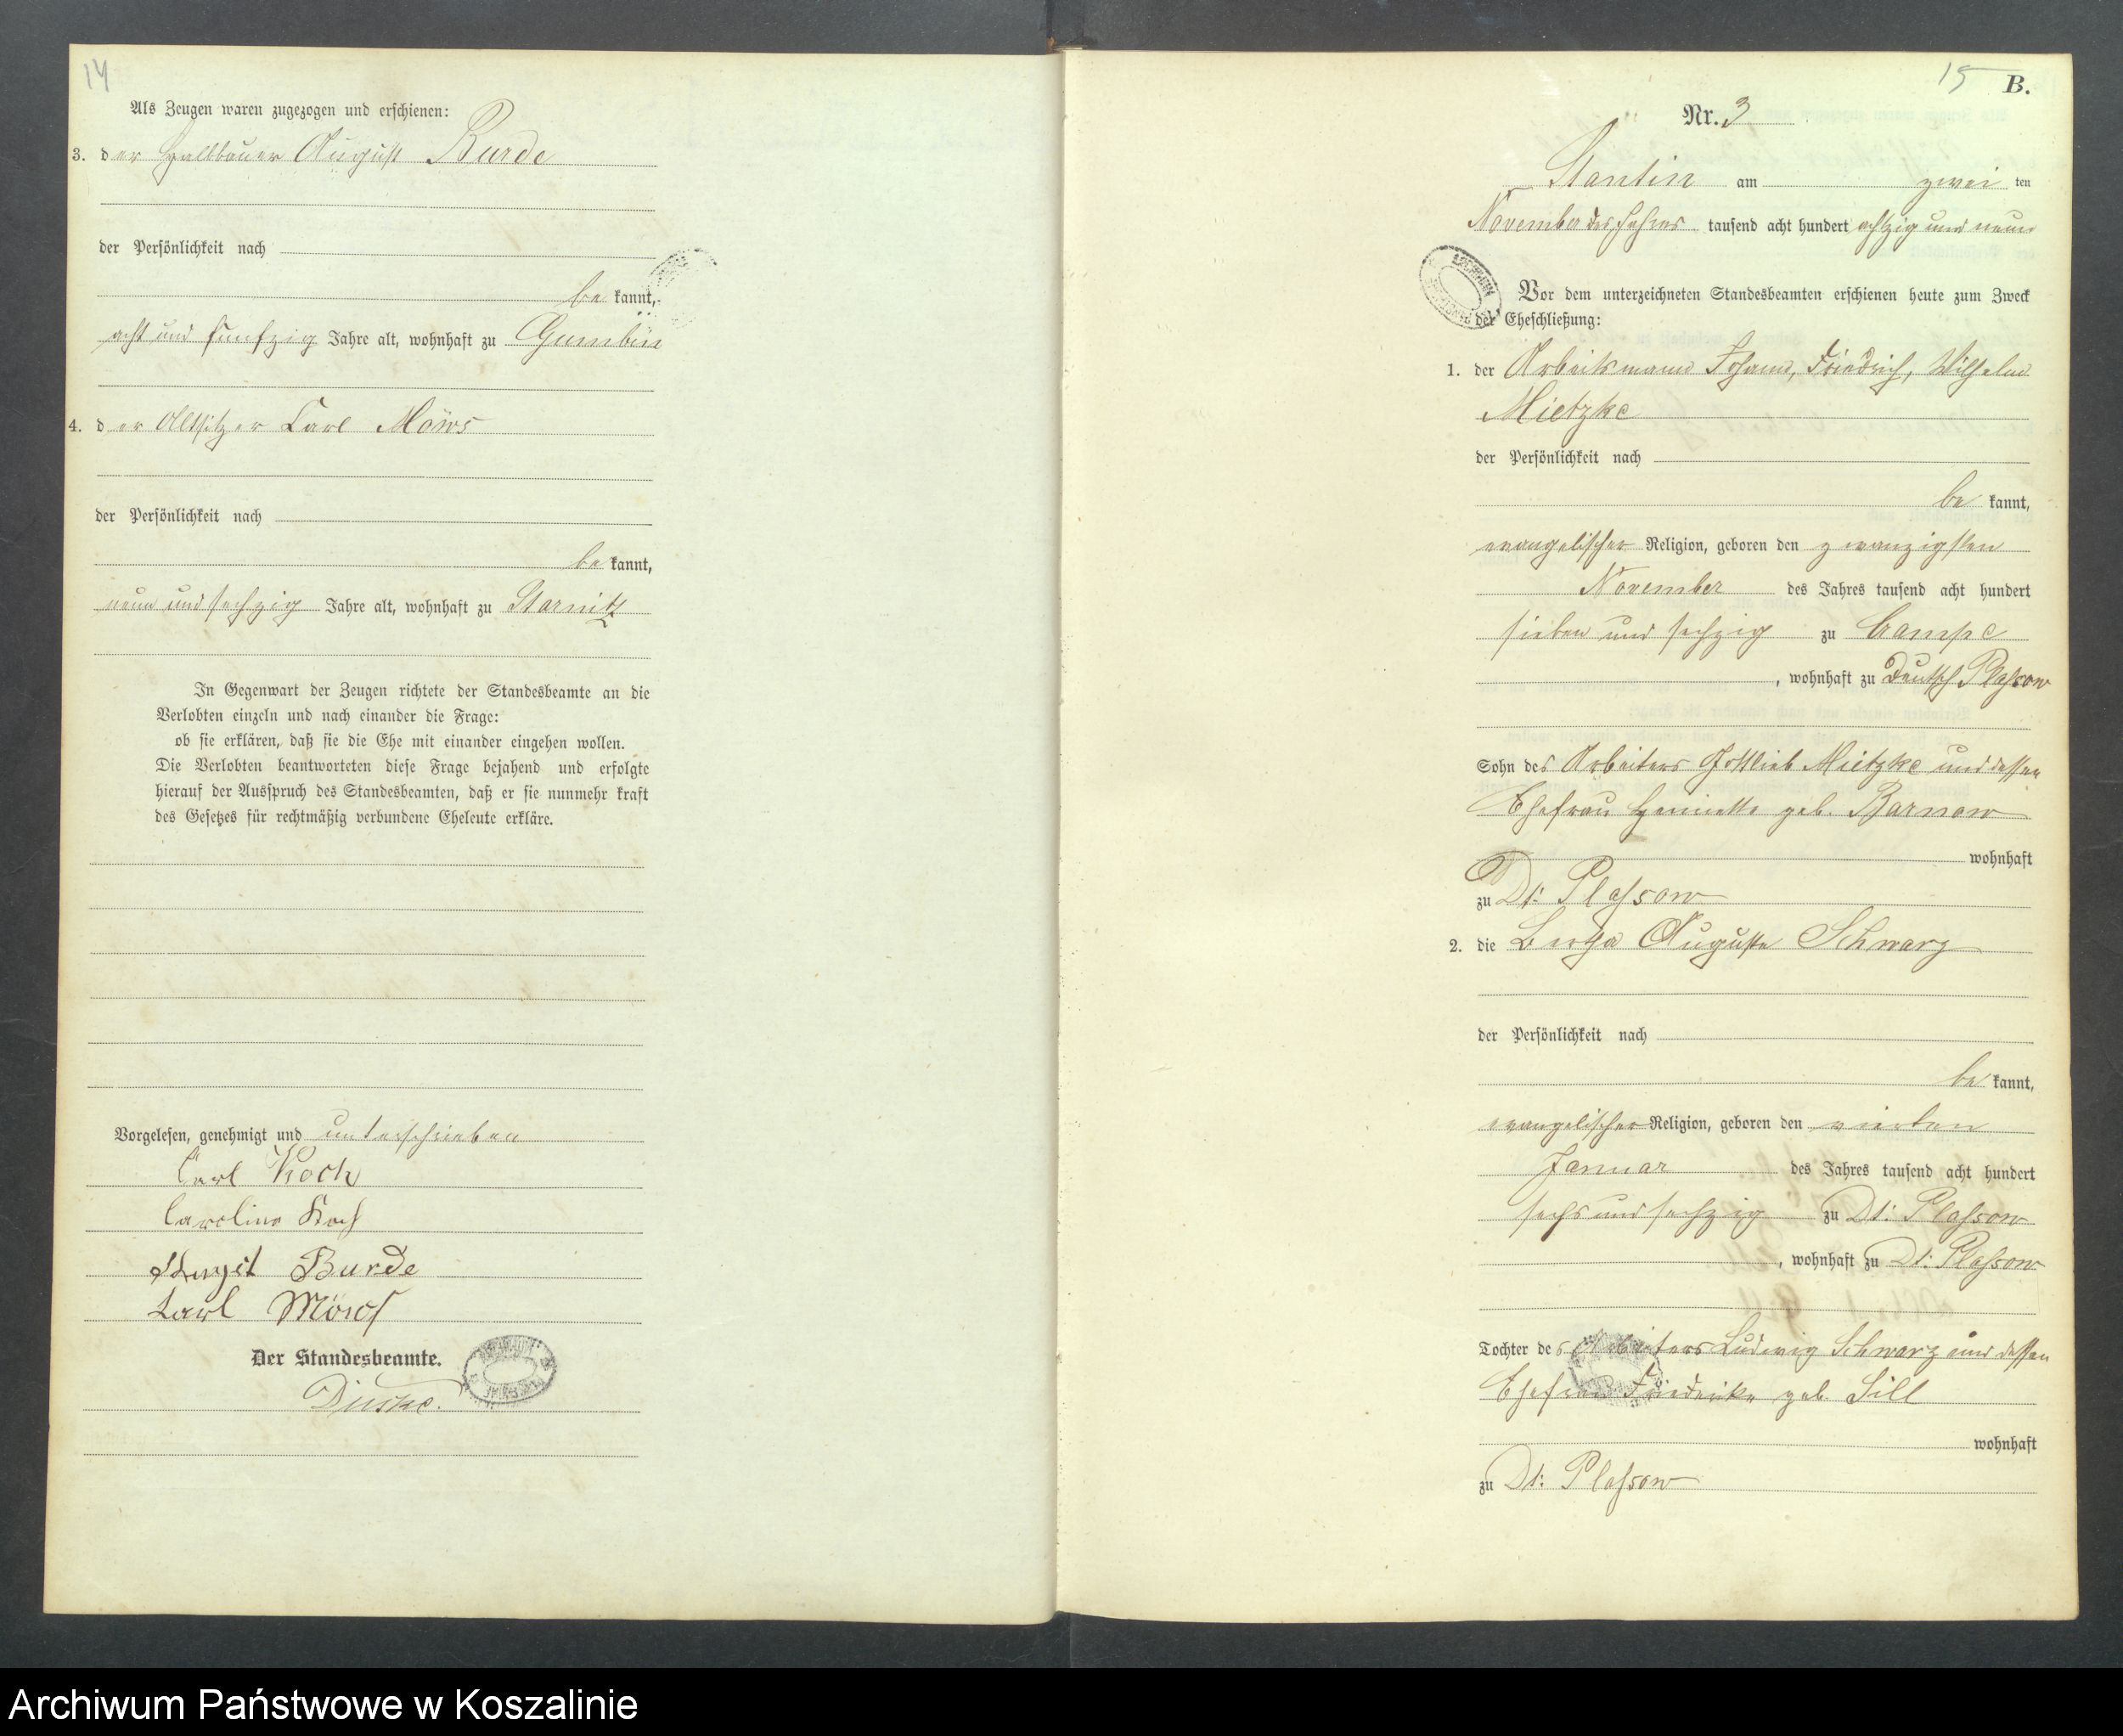 14
Als Zeugen waren zugezogen und erschienen:
3. der Halbbauer August Burde
der Persönlichkeit nach
bekannt,
acht und fünfzig Jahre alt, wohnhaft zu Gumbin
4. der Altsitzer Carl Möws
der Persönlichkeit nach
bekannt,
neun und sechzig Jahre alt, wohnhaft zu Starnitz
In Gegenwart der Zeugen richtete der Standesbeamte an die
Verlobten einzeln und nach einander die Frage:
ob sie erklären, daß sie die Ehe mit einander eingehen wollen.
Die Verlobten beantworteten diese Frage bejahend und erfolgte
hierauf der Ausspruch des Standesbeamten, daß er sie nunmehr kraft
des Gesetzes für rechtmäßig verbundene Eheleute erkläre.
Vorgelesen, genehmigt und unterschrieben
Carl Koch
Caroline Koch
August Burde
Carl Möws
Der Standesbeamte.
15 B.
Nr. 3
Stantin am zweiten
November des Jahres tausend acht hundert achtzig und neun
Vor dem unterzeichneten Standesbeamten erschienen heute zum Zweck
der Eheschließung:
1. der Arbeitsmann Johann, Friedrich, Wilhelm
Mietzke
der Persönlichkeit nach
bekannt,
evangelischer Religion, geboren den zwanzigsten
November des Jahres tausend acht hundert
sieben und sechzig zu Campe
, wohnhaft zu Deutsch Plassow
Sohn des Arbeiters Gottlieb Mietzke und dessen
Ehefrau Henriette geb. Barnow
wohnhaft
zu Dt: Plassow
2. die Bertha Auguste Schwarz
der Persönlichkeit nach
bekannt,
evangelischer Religion, geboren den vierten
Januar des Jahres tausend acht hundert
sechs und sechzig zu Dt: Plassow
, wohnhaft zu Dt: Plassow
Tochter des Arbeiters Ludwig Schwarz und dessen
Ehefrau Friederike geb. Sill
wohnhaft
zu Dt: Plassow
Archiwum Państwowe w Koszalinie